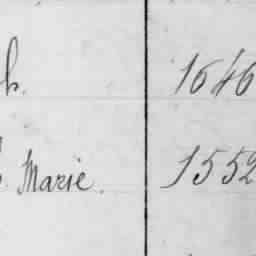 h. 1646
Marie. 1552